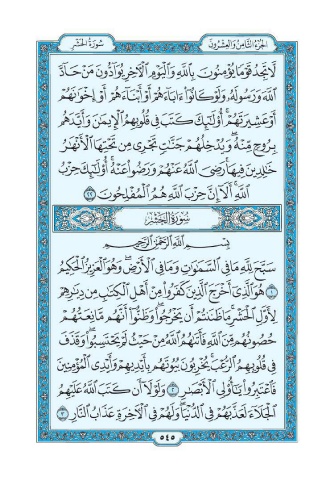 الجزء الثامن والعشرون
سورة الحشر
لَّا تَجِدُ قَوْمًا يُؤْمِنُونَ بِاللَّهِ وَالْيَوْمِ الْآخِرِ يُوَادُّونَ مَنْ حَادَّ
اللَّهَ وَرَسُولَهُ وَلَوْ كَانُوا ءَابَاءَهُمْ أَوْ أَبْنَاءَهُمْ أَوْ إِخْوَانَهُمْ
أَوْ عَشِيرَتَهُمْ أُولَٰئِكَ كَتَبَ فِي قُلُوبِهِمُ الْإِيمَٰنَ وَأَيَّدَهُم
بِرُوحٍ مِّنْهُ وَيُدْخِلُهُمْ جَنَّٰتٍ تَجْرِي مِن تَحْتِهَا الْأَنْهَٰرُ
خَٰلِدِينَ فِيهَا رَضِيَ اللَّهُ عَنْهُمْ وَرَضُوا عَنْهُ أُولَٰئِكَ حِزْبُ
اللَّهِ أَلَا إِنَّ حِزْبَ اللَّهِ هُمُ الْمُفْلِحُونَ ٢٢
سورة الحشر
بِسْمِ اللَّهِ الرَّحْمَٰنِ الرَّحِيمِ
سَبَّحَ لِلَّهِ مَا فِي السَّمَٰوَٰتِ وَمَا فِي الْأَرْضِ وَهُوَ الْعَزِيزُ الْحَكِيمُ
١ هُوَ الَّذِي أَخْرَجَ الَّذِينَ كَفَرُوا مِنْ أَهْلِ الْكِتَٰبِ مِن دِيَٰرِهِمْ
لِأَوَّلِ الْحَشْرِ مَا ظَنَنتُمْ أَن يَخْرُجُوا وَظَنُّوا أَنَّهُم مَّانِعَتُهُمْ
حُصُونُهُم مِّنَ اللَّهِ فَأَتَىٰهُمُ اللَّهُ مِنْ حَيْثُ لَمْ يَحْتَسِبُوا وَقَذَفَ
فِي قُلُوبِهِمُ الرُّعْبَ يُخْرِبُونَ بُيُوتَهُم بِأَيْدِيهِمْ وَأَيْدِي الْمُؤْمِنِينَ
فَاعْتَبِرُوا يَٰأُولِي الْأَبْصَٰرِ ٢ وَلَوْلَا أَن كَتَبَ اللَّهُ عَلَيْهِمُ
الْجَلَاءَ لَعَذَّبَهُمْ فِي الدُّنْيَا وَلَهُمْ فِي الْآخِرَةِ عَذَابُ النَّارِ ٣
٥٤٥